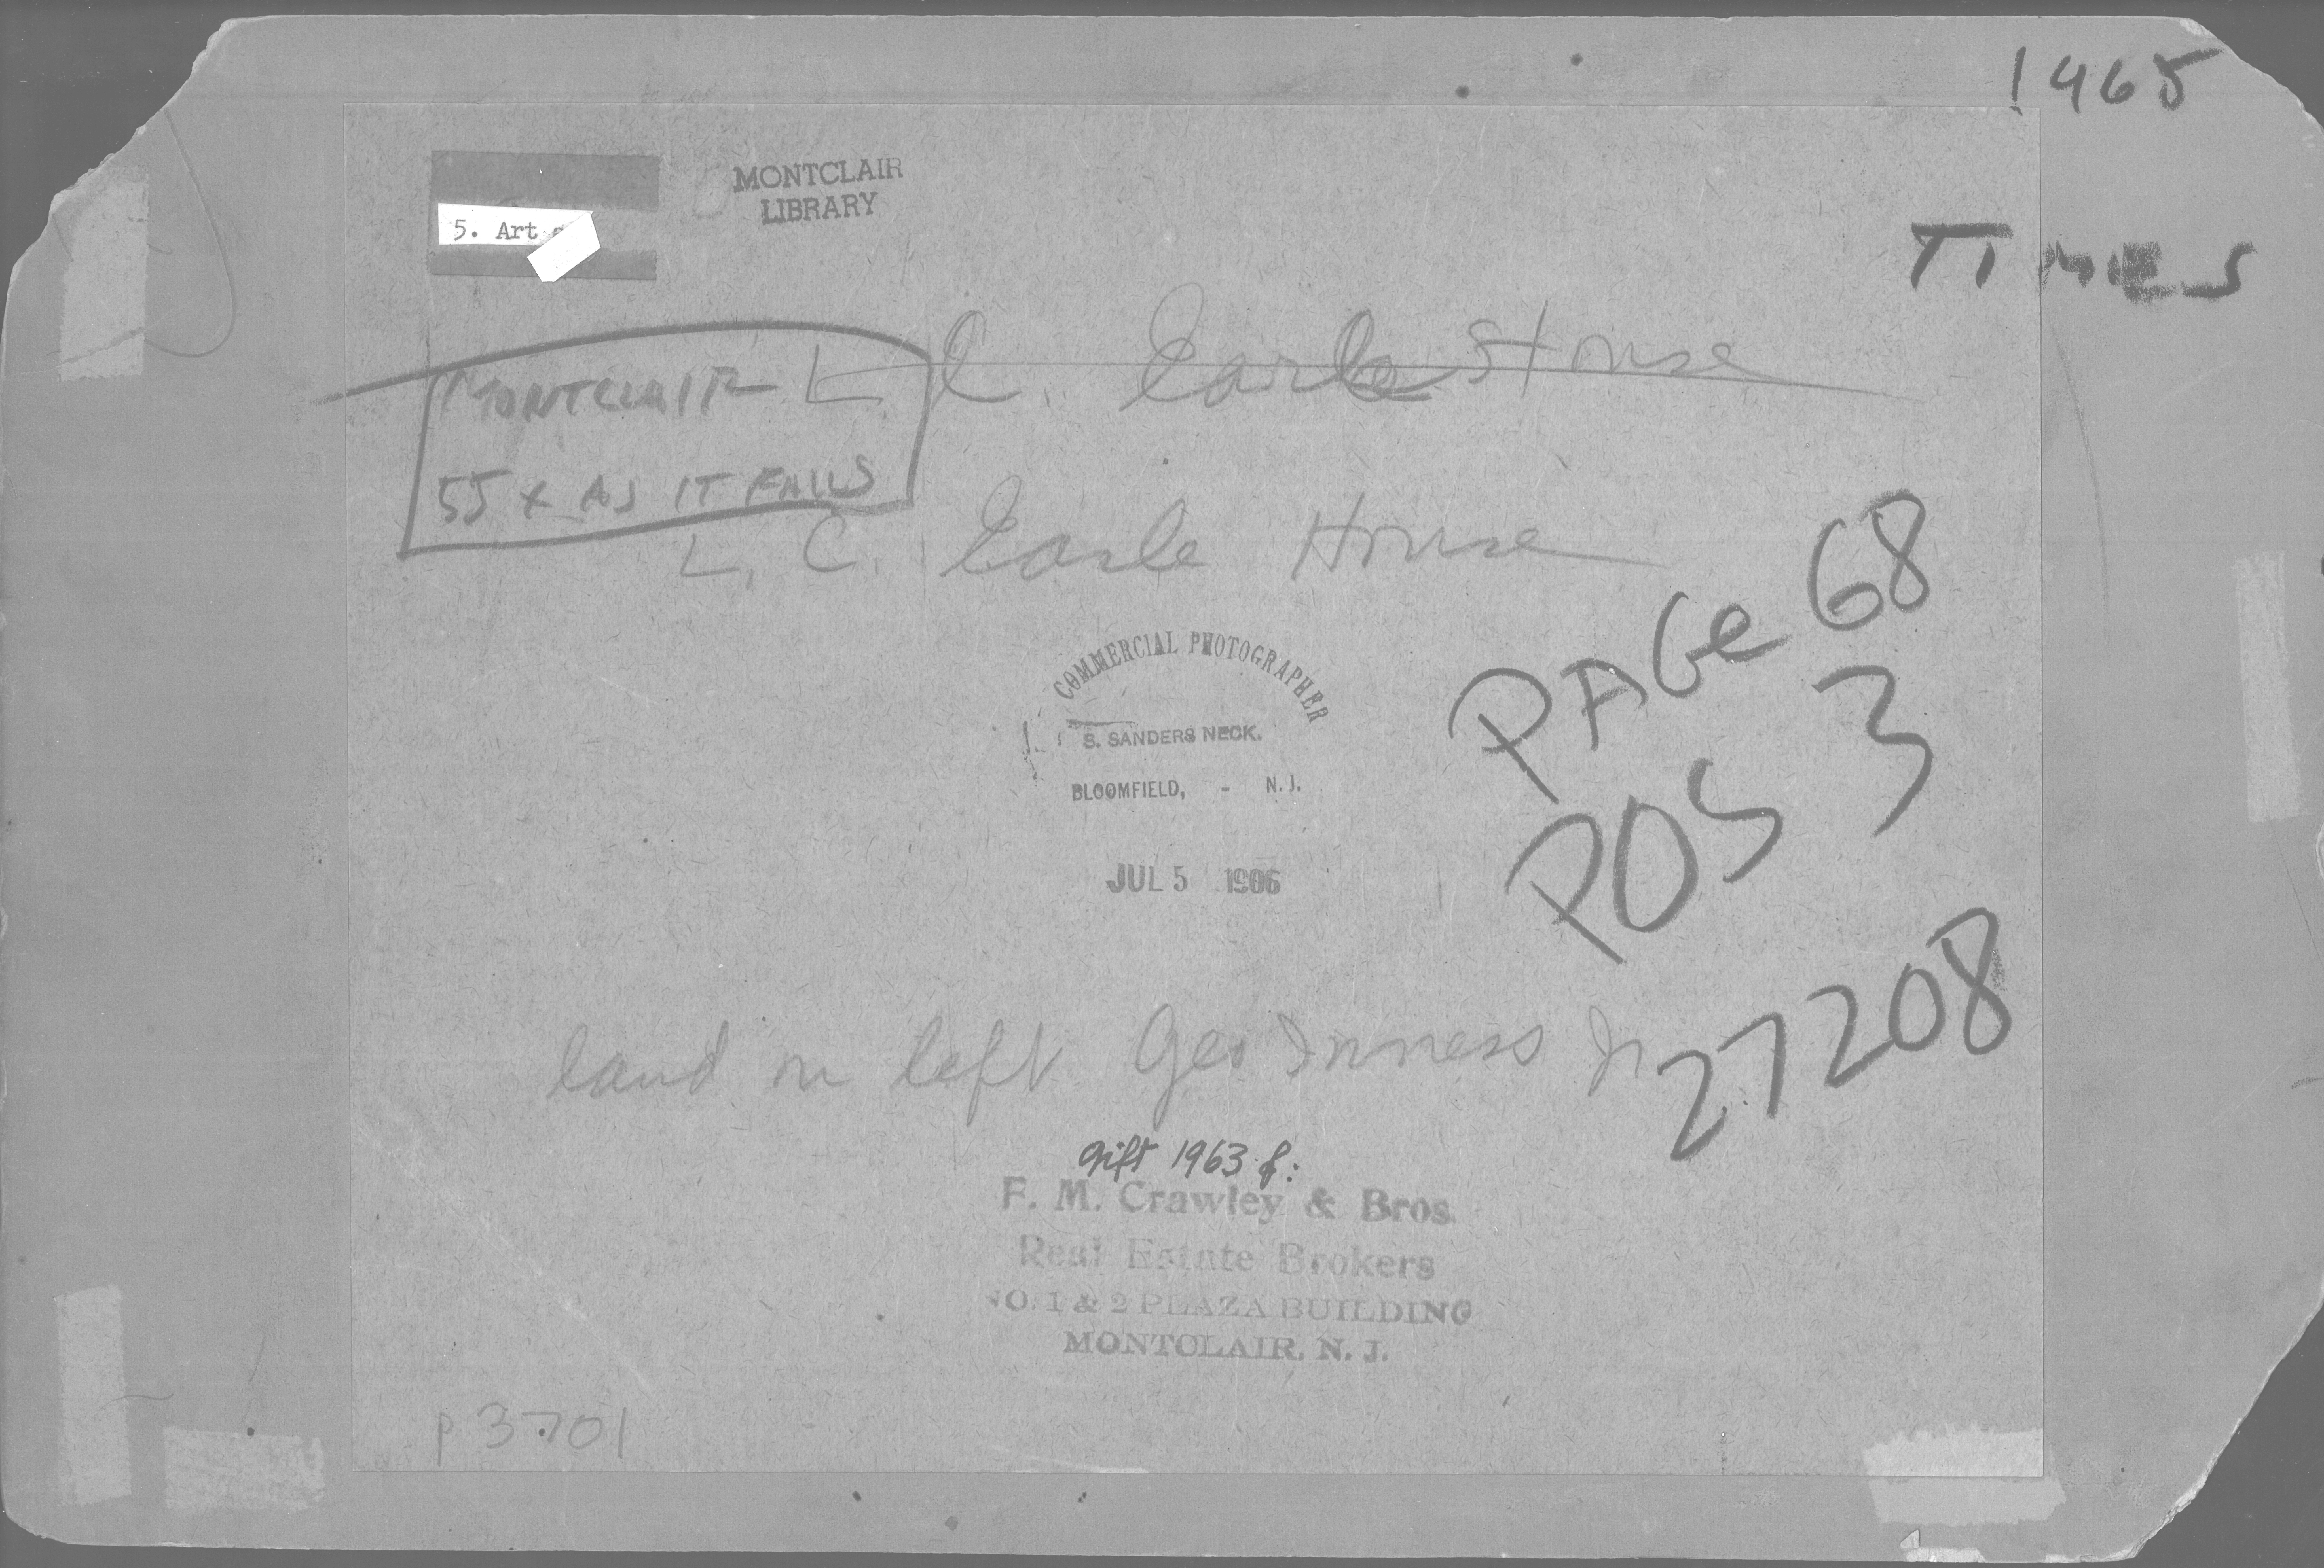 1965
TIMES
MONTCLAIR
LIBRARY
5. Art
MONTCLAIR
55 x AS IT FALLS
L. C. Earle House
L. C. Earle House
PAGE 68
POS 3
27208
COMMERCIAL PHOTOGRAPHER
S. SANDERS NECK.
BLOOMFIELD, - N.J.
JUL 5 1906
land on left Geo Inness Jr
gift 1963 of:
F. M. Crawley & Bros.
Real Estate Brokers
NO. 1 & 2 PLAZA BUILDING
MONTCLAIR, N. J.
p 3701